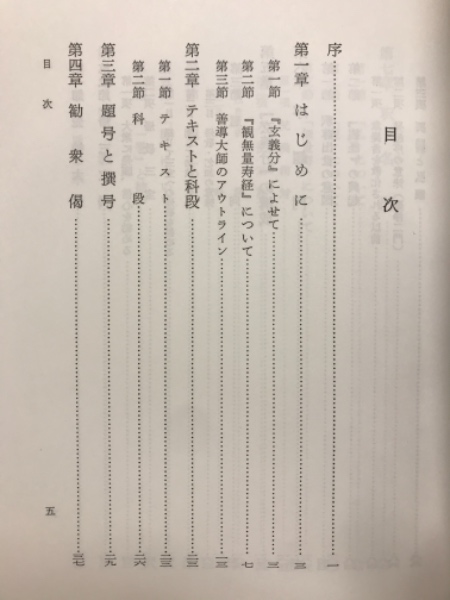 目次
序……一
第一章 はじめに……三
第一節 『玄義分』によせて……三
第二節 『観無量寿経』について……七
第三節 善導大師のアウトライン……一三
第二章 テキストと科段……二三
第一節 テキスト……二三
第二節 科段……二六
第三章 題号と撰号……二九
第四章 勧衆偈……三七
目次
五